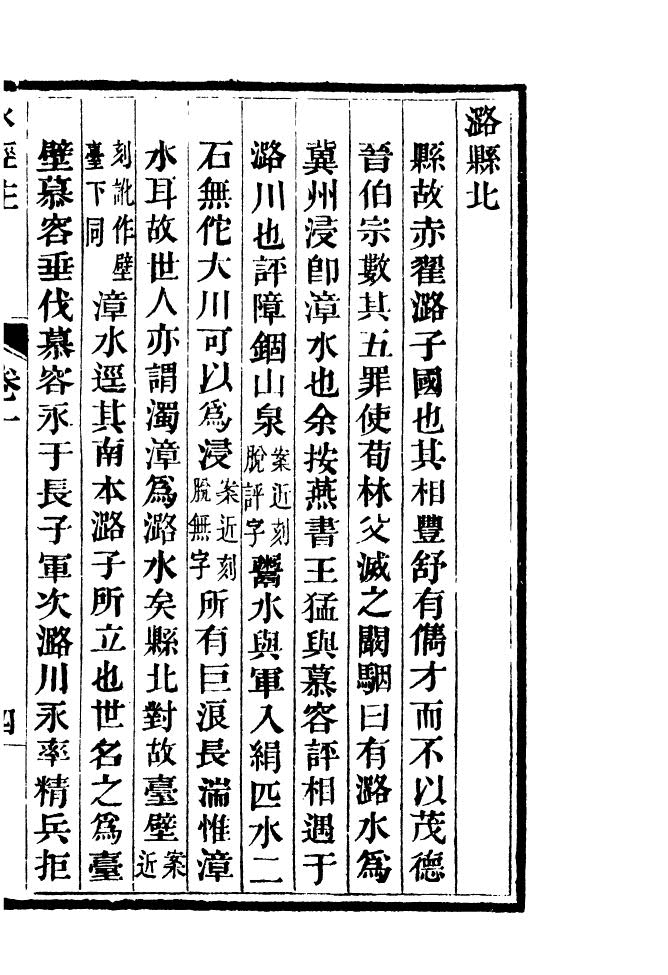 潞縣北
縣故赤翟潞子國也其相豐舒有儁才而不以茂德
晉伯宗數其五罪使荀林父滅之闞駰曰有潞水為
冀州浸卽漳水也余按燕書王猛與慕容評相遇于
潞川也評障錮山泉案近刻脫評字鬻水與軍入絹匹水二
石無佗大川可以為浸案近刻脫無字所有巨浪長湍惟漳
水耳故世人亦謂濁漳為潞水矣縣北對故臺壁案近
刻訛作壁臺下同漳水逕其南本潞子所立也世名之為臺
壁慕容垂伐慕容永于長子軍次潞川永率精兵拒
水經注 卷十 四